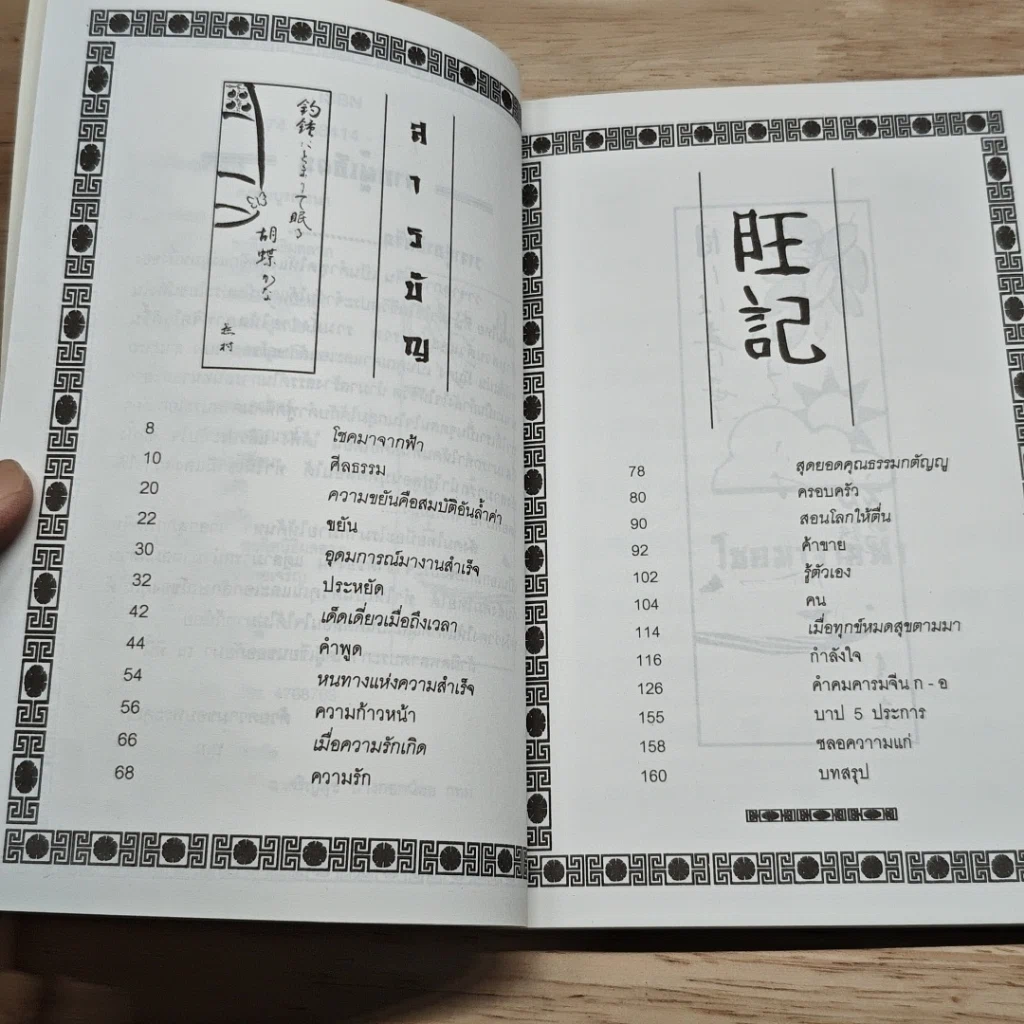 釣鐘にとまりて眠る
胡蝶かな
蕪村
สารบัญ
8 โชคมาจากฟ้า
10 ศีลธรรม
20 ความขยันคือสมบัติอันล้ำค่า
22 ขยัน
30 อุดมการณ์มางานสำเร็จ
32 ประหยัด
42 เด็ดเดี่ยวเมื่อถึงเวลา
44 คำพูด
54 หนทางแห่งความสำเร็จ
56 ความก้าวหน้า
66 เมื่อความรักเกิด
68 ความรัก
旺記
78 สุดยอดคุณธรรมกตัญญู
80 ครอบครัว
90 สอนโลกให้ตื่น
92 ค้าขาย
102 รู้ตัวเอง
104 คน
114 เมื่อทุกข์หมดสุขตามมา
116 กำลังใจ
126 คำคมคารมจีน ก - อ
155 บาป 5 ประการ
158 ชลอความแก่
160 บทสรุป